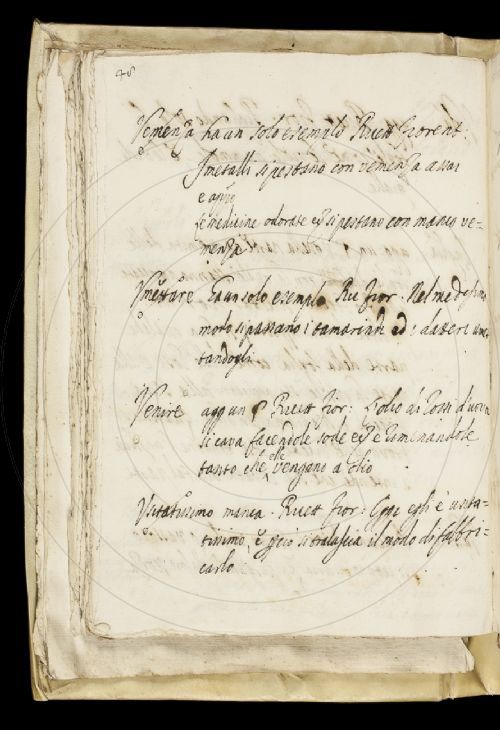 48
Vemenza ha un solo esemplo Ricett fiorent:
I metalli si pestano con vemenza assai
e aqu
le medicine odorate si pestano con manco ve=
menza
Umettare Ha un solo esemplo Ric fior. Nel medesimo
modo si passano i tamarindi ed i datteri ume
tandogli
Venire aggun Ricett fior: l'olio di Tossi d'uova
si cava facendole sode e rimenandole
tanto che vengano a olio
Usitatissimo manca. Ricett fior: Oggi egli è usita-
tissimo, e perciò si tralascia il modo di fabbri-
carlo